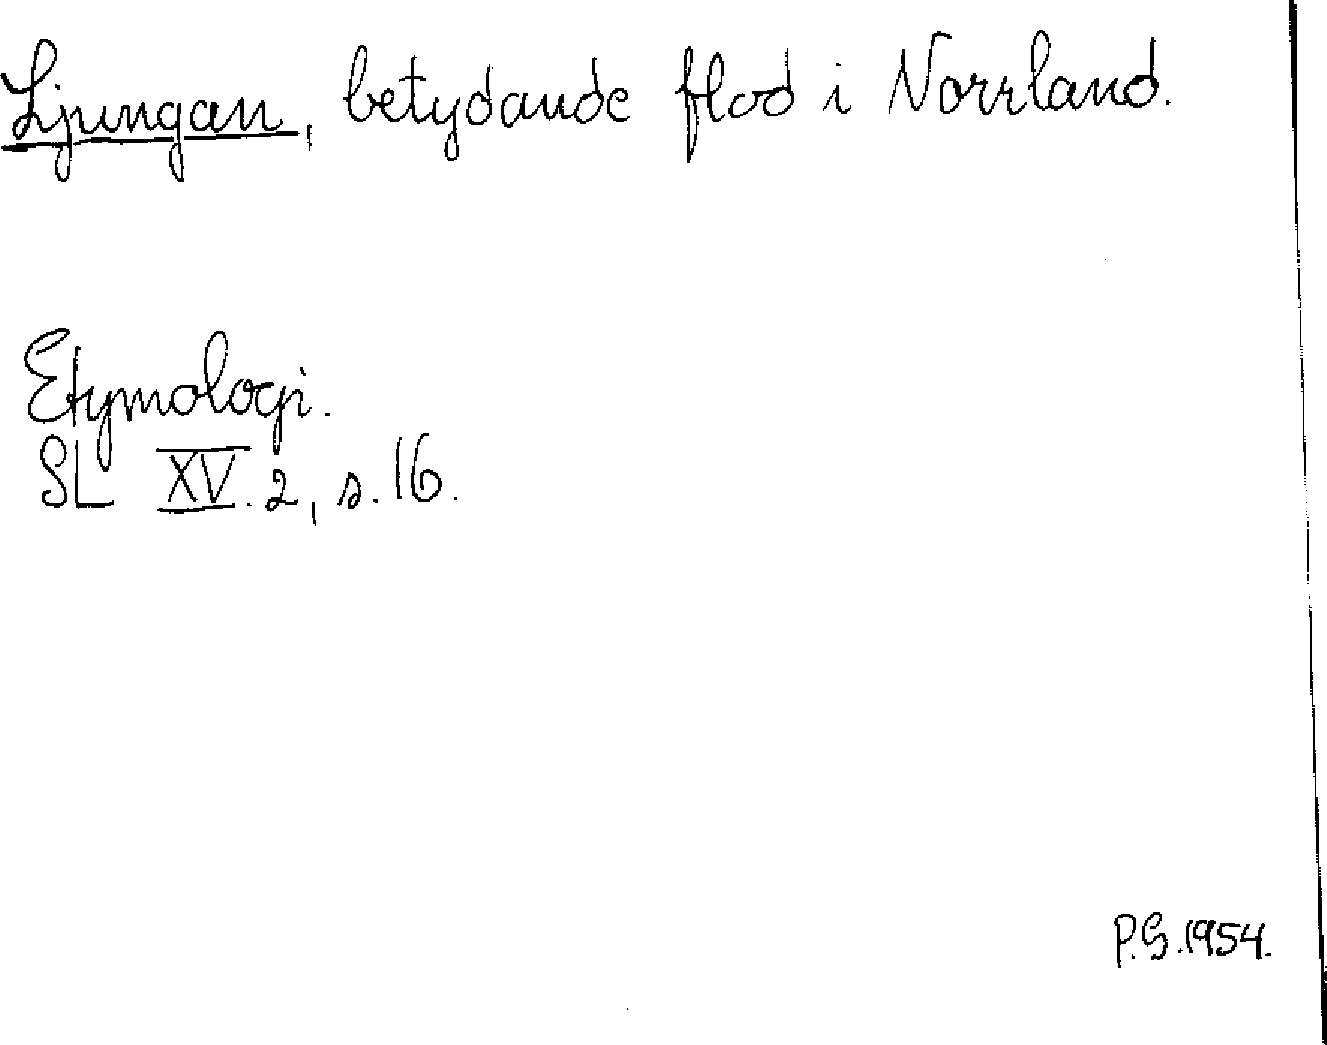 Ljungan, betydande flod i Norrland.
Etymologi.
SL XV. 2, s. 16.
P.G. 1954.